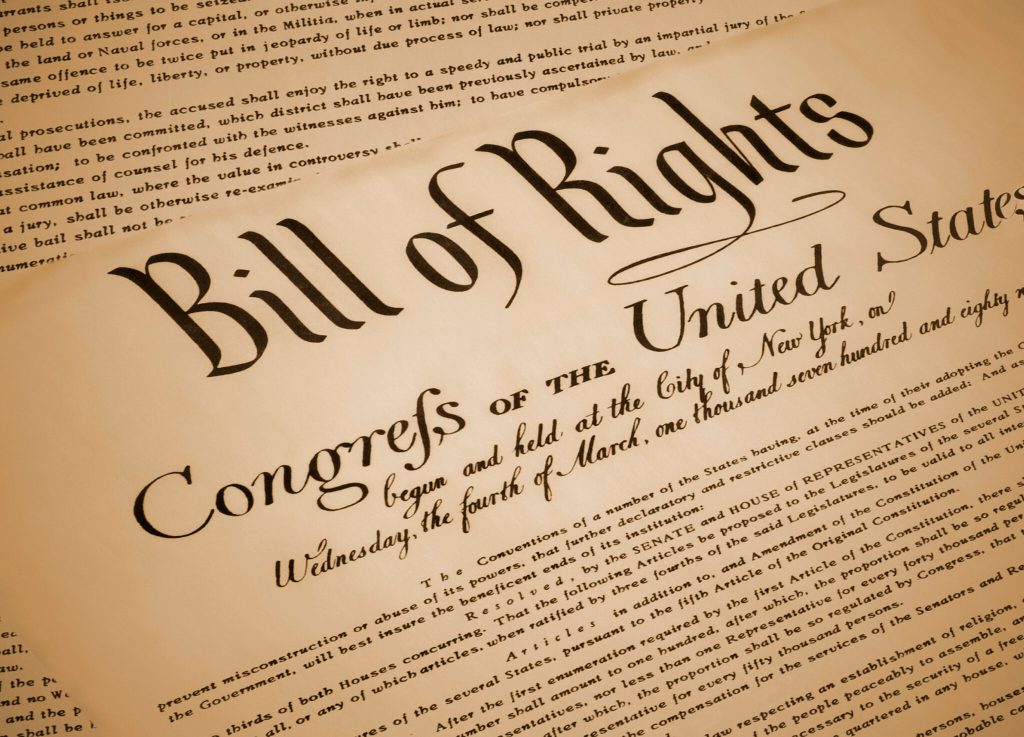 rrants shall
persons or things to be seize
be held to answer for a capital, or otherwise
the land or Naval forces, or in the Militia, when in actual
same offence to be twice put in jeopardy of life or limb; nor shall be
deprived of life, liberty, or property, without due process of law; nor shall private property
al prosecutions, the accused shall enjoy the right to a speedy and public trial by an impartial jury of the
hall have been committed, which district shall have been previously ascertained by law,
sation; to be confronted with the witnesses against him; to have compulsory
assistance of counsel for his defence.
at common law, where the value in controversy
a jury, shall be otherwise re-exami
ive bail shall not be
numerati
Bill of Rights
Congreſs OF THE United States
begun and held at the City of New York, on
Wednesday, the fourth of March, one thousand seven hundred and eighty
The Conventions of a number of the States having, at the time of their adopting the
prevent misconstruction or abuse of its powers, that further declaratory and restrictive clauses should be added: And as
the Government, will best insure the beneficent ends of its institution:
Resolved, by the SENATE and HOUSE of REPRESENTATIVES of the UNIT
thirds of both Houses concurring. That the following Articles be proposed to the Legislatures of the several
all, or any of which articles, when ratified by three fourths of the said Legislatures, to be valid to all
Articles in addition to, and Amendment of the Constitution of the Uni
res of the several States, pursuant to the fifth Article of the Original Constitution.
After the first enumeration required by the first Article of the Constitution, there
mber shall amount to one hundred, after which, the proportion shall be so regul
entatives, nor less than one Representative for every forty thousand per
after which, the proportion shall be so regulated by Congress, that
resentative for every fifty thousand persons.
compensation for the services of the Senators and Re
law respecting an establishment of religion,
of the people peaceably to assemble, an
ecessary to the security of a free
quartered in any house,
persons, houses
robable
all,
law.
of the
and no
and the p
shall be